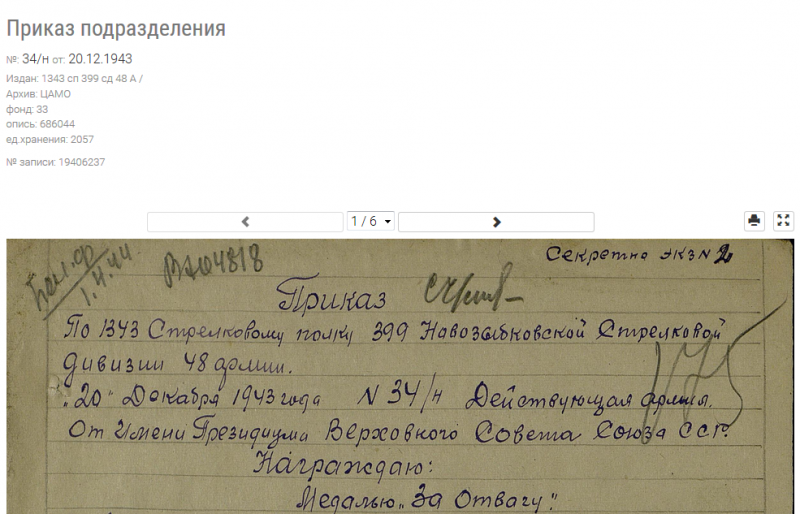 Приказ подразделения
№: 34/н от: 20.12.1943
Издан: 1343 сп 399 сд 48 А /
Архив: ЦАМО
фонд: 33
опись: 686044
ед.хранения: 2057
№ записи: 19406237
1 / 6
Секретно экз N 2
04818
Приказ
По 1343 Стрелковому полку 399 Новозыбковской Стрелковой
дивизии 48 армии.
"20" Декабря 1943 года N 34/н Действующая армия.
От Имени Президиума Верховного Совета Союза ССР.
Награждаю:
Медалью "За Отвагу":